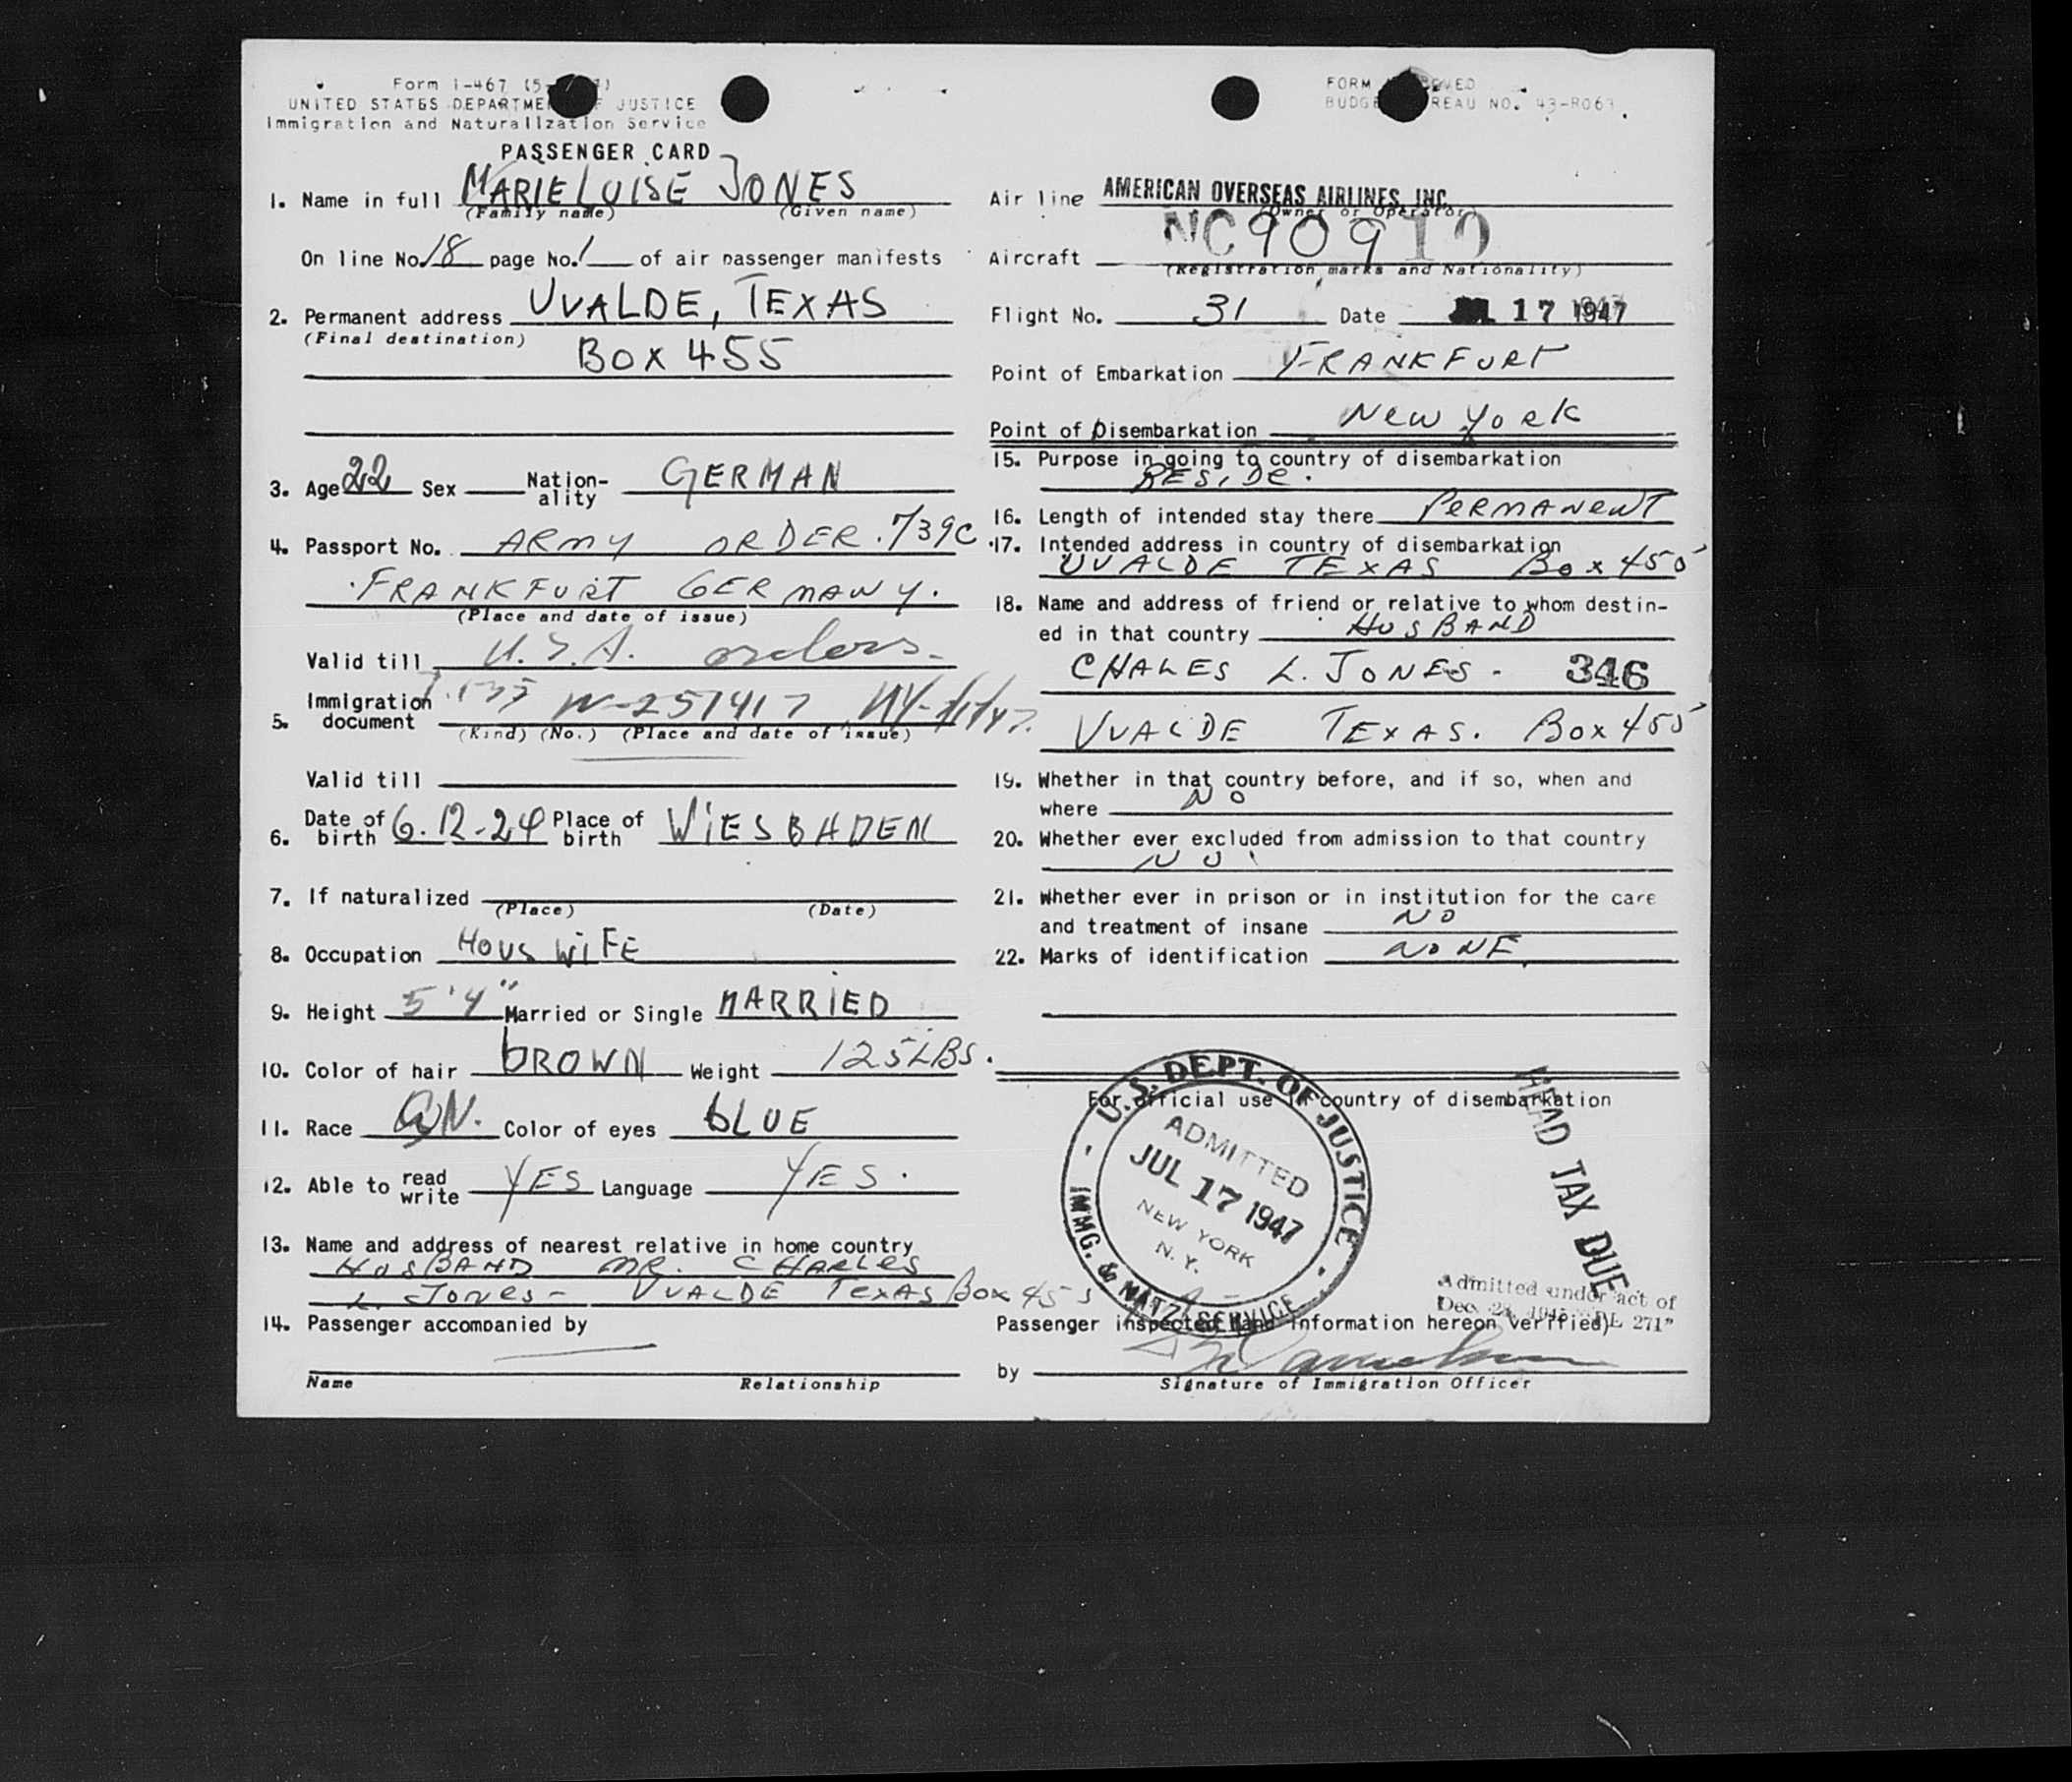 Form I-467 (5-
UNITED STATES DEPARTMENT OF JUSTICE
Immigration and Naturalization Service
PASSENGER CARD
1. Name in full MARIELUISE JONES
(Family name) (Given name)
On line No. 18 page No. 1 of air passenger manifests
2. Permanent address UVALDE, TEXAS
(Final destination) BOX 455
3. Age 22 Sex Nation-ality GERMAN
4. Passport No. ARMY ORDER. 739C
FRANKFURT GERMANY.
(Place and date of issue)
Valid till U.S.A. orders.
5. Immigration document W-251417 NY-
(Kind) (No.) (Place and date of issue)
Valid till
6. Date of birth 6.12-24 Place of birth WIESBADEN
7. If naturalized
(Place) (Date)
8. Occupation HOUSWIFE
9. Height 5'4" Married or Single MARRIED
10. Color of hair bROWN Weight 125 LBS.
11. Race Color of eyes bLUE
12. Able to read write YES Language YES.
13. Name and address of nearest relative in home country
HUSBAND MR. CHARLES
L. JONES- UVALDE TEXAS BOX 455
14. Passenger accompanied by
Name Relationship
FORM APPROVED
BUDGET BUREAU NO. 43-R063.
Air line AMERICAN OVERSEAS AIRLINES, INC.
(Owner or Operator)
Aircraft NC90910
(Registration marks and Nationality)
Flight No. 31 Date 17 1947
Point of Embarkation FRANKFURT
Point of Disembarkation New York
15. Purpose in going to country of disembarkation
RESIDE.
16. Length of intended stay there PERMANENT
17. Intended address in country of disembarkation
UVALDE TEXAS Box 455
18. Name and address of friend or relative to whom destin-
ed in that country HUSBAND
CHALES L. JONES. 346
UVALDE TEXAS. Box 455
19. Whether in that country before, and if so, when and
where NO
20. Whether ever excluded from admission to that country
NO
21. Whether ever in prison or in institution for the care
and treatment of insane NO
22. Marks of identification NONE
For official use in country of disembarkation
U.S. DEPT. OF JUSTICE
ADMITTED
JUL 17 1947
NEW YORK
N. Y.
IMMG. & NATZ. SERVICE
HEAD TAX DUE
Admitted under act of
Dec. 28, 1945 "PL 271"
Passenger inspected (and information hereon verified)
by
Signature of Immigration Officer